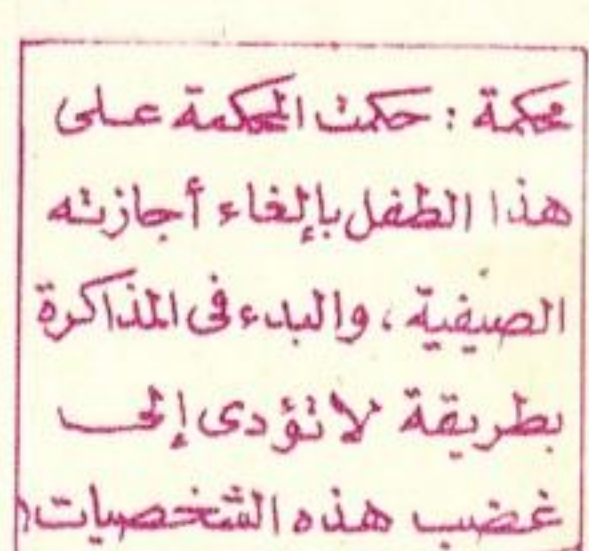 محكمة : حكمت المحكمة على
هذا الطفل بإلغاء أجازته
الصيفية ، والبدء فى المذاكرة
بطريقة لا تؤدى إلى
غضب هذه الشخصيات !